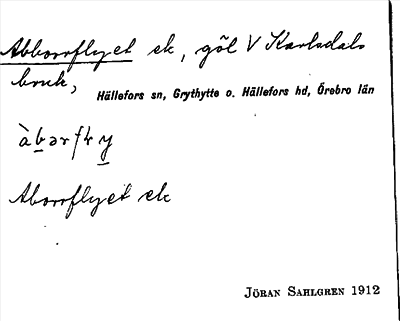 Abborrflyet ek, göl V Karlsdals
bruk,
Hällefors sn, Grythytte o. Hällefors hd, Örebro län
Aborrflyet ek
JÖRAN SAHLGREN 1912